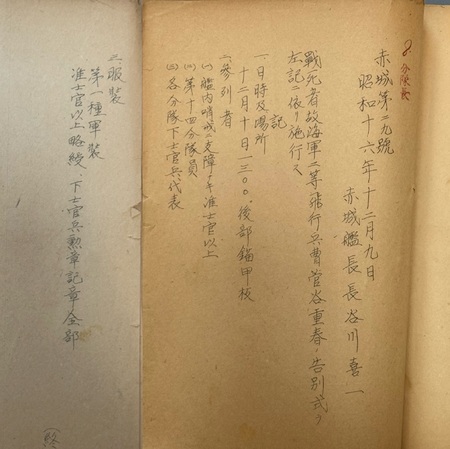 8分隊長
赤城第二九號
昭和十六年十二月九日
赤城艦長長谷川喜一
戰死者故海軍二等飛行兵曹菅谷重春ノ告別式ヲ
左記ニ依リ施行ス
記
一、日時及場所
十二月十日一三〇〇、後部錨甲板
二、參列者
(一)艦内哨戒ニ支障ナキ准士官以上
(二)第十四分隊員
(三)各分隊下士官兵代表
三、服裝
第一種軍裝
准士官以上略綬、下士官兵勲章記章全部
(終